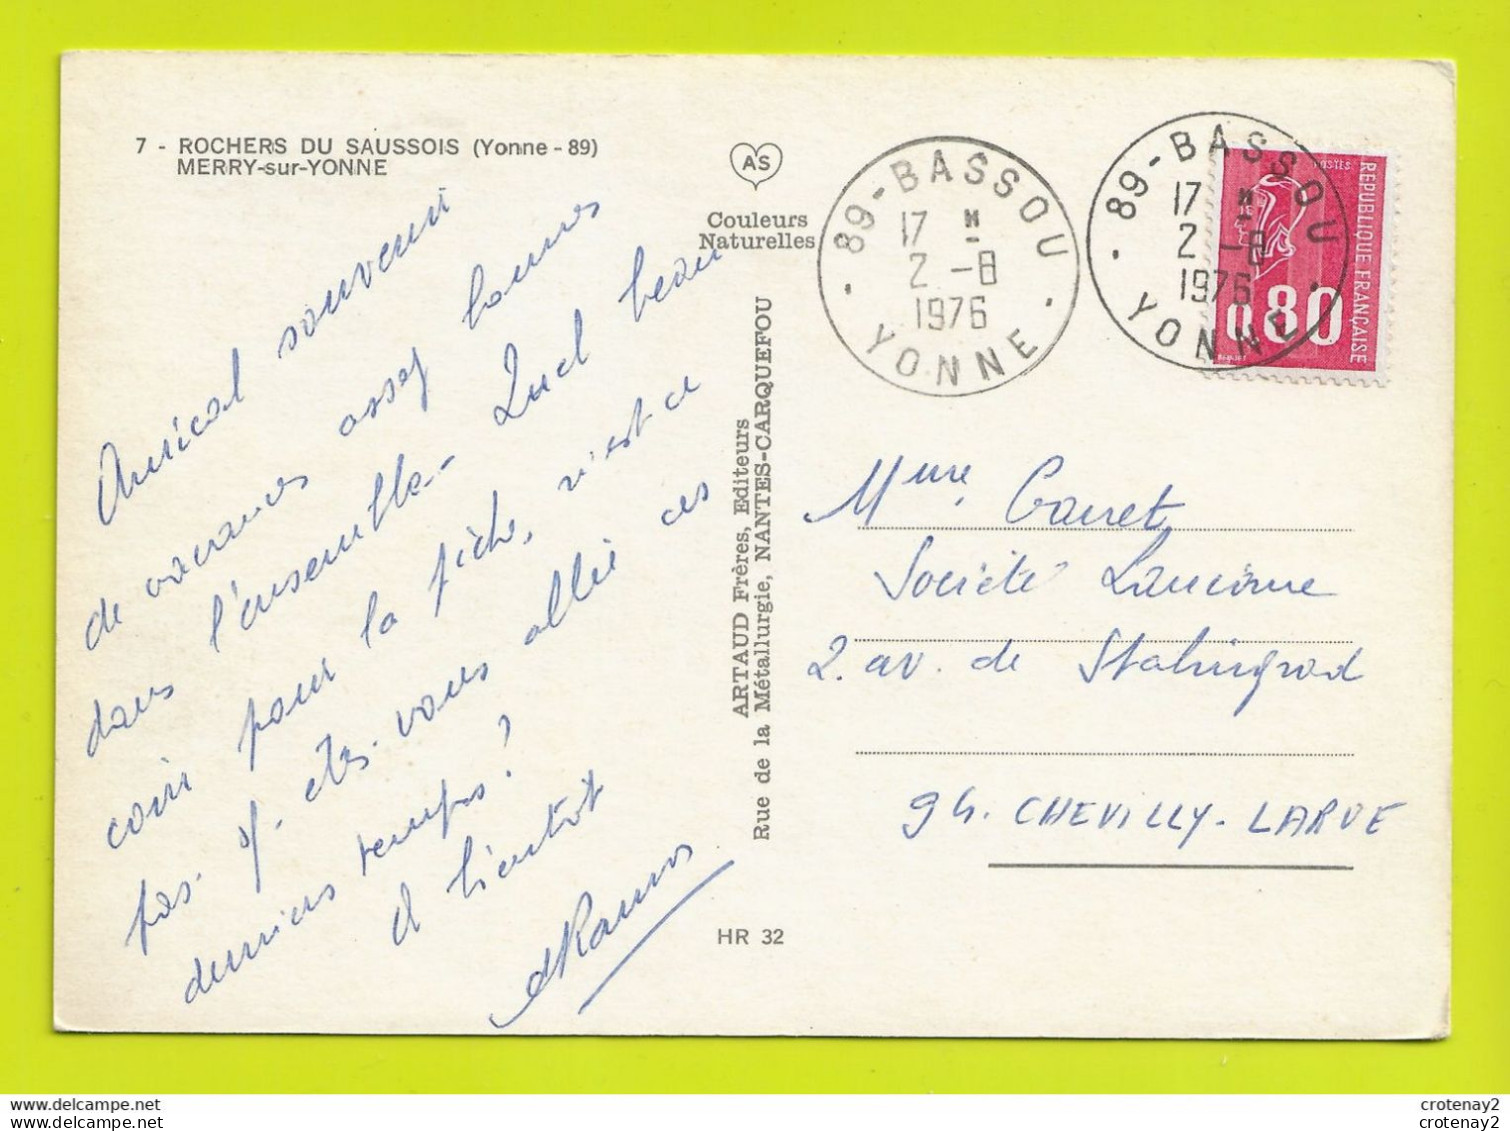 7 - ROCHERS DU SAUSSOIS (Yonne - 89)
MERRY-sur-YONNE
AS
Couleurs
Naturelles
Amical souvenir
de vacances assez bonnes
dans l'ensemble - Quel beau
coin pour la pêche, n'est ce
pas. Y êtes-vous allée ces
derniers temps ?
A bientôt
ARTAUD Frères, Editeurs
Rue de la Métallurgie, NANTES-CARQUEFOU
HR 32
89 - BASSOU
17 H
2 - 8
1976
YONNE
89 - BASSOU
17 H
2 - 8
1976
YONNE
POSTES
REPUBLIQUE FRANÇAISE
0,80
Mme
Société Lancôme
2. av. de Stalingrad
94. CHEVILLY-LARUE
crotenay2
crotenay2
crotenay2
crotenay2